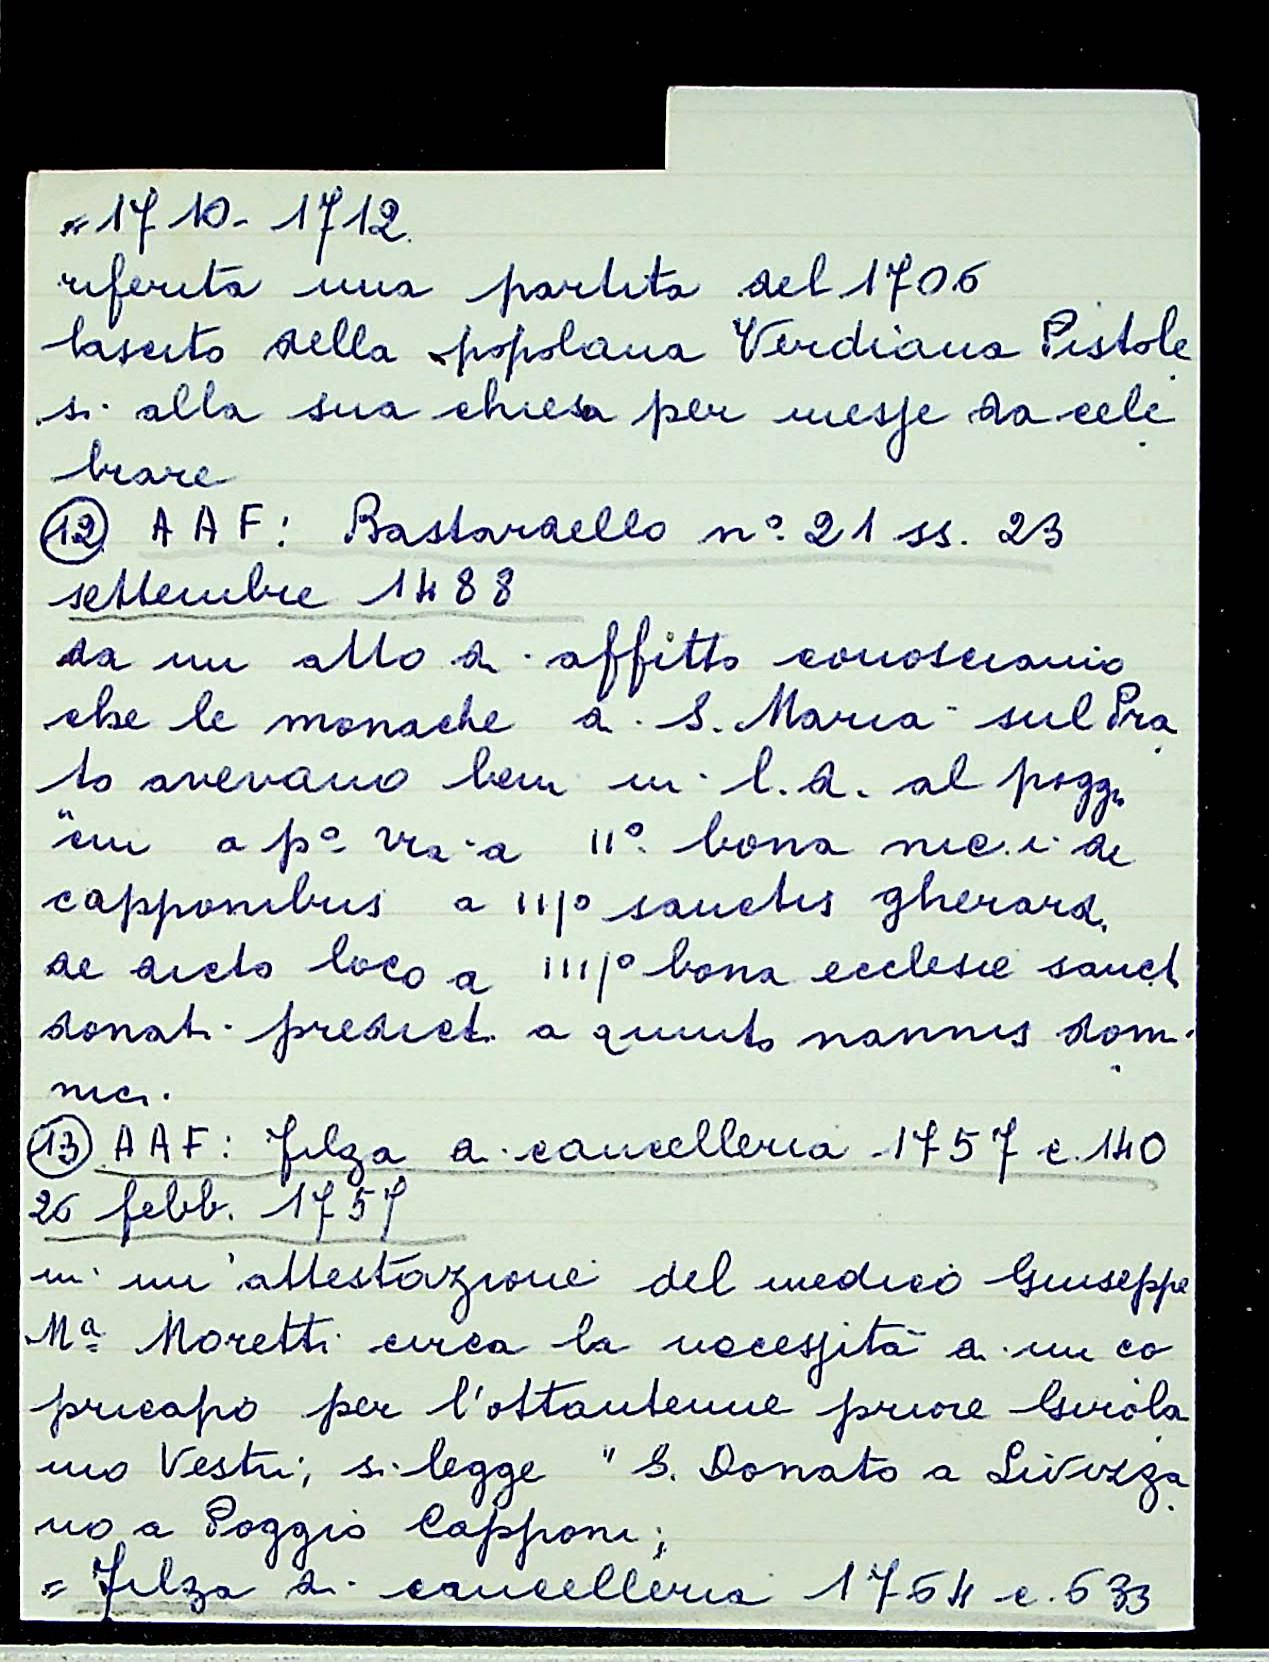 = 1710-1712.
riferita una partita del 1706
lascito della popolana Verdiana Pistole
si alla sua chiesa per messe da cele
brare
(12) AAF: Bastardello n° 21 ss. 23
settembre 1488
da un atto di affitto conosciamo
che le monache di S. Maria sul Pra
to avevano beni in l.d. al poggi
"cui a p° via a II° bona nic.i de
capponibus a III° sanctis gherard.
de dicto loco a IIII° bona ecclesie sanct
donati predict. a quinto nannis dom.
nici.
(13) AAF: Filza di cancelleria 1757 c. 140
26 febb. 1757
in un'attestazione del medico Giuseppe
Mª Moretti circa la necessità di un co
pricapo per l'ottantenne priore Girola
mo Vestri; si legge "S. Donato a Livizza
no a Poggio Capponi;
= Filza di cancelleria 1764 c. 633